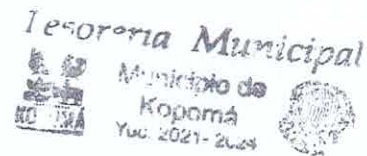 Tesorería Municipal
Municipio de
Kopomá
Yuc. 2021-2024
KOPOMÁ